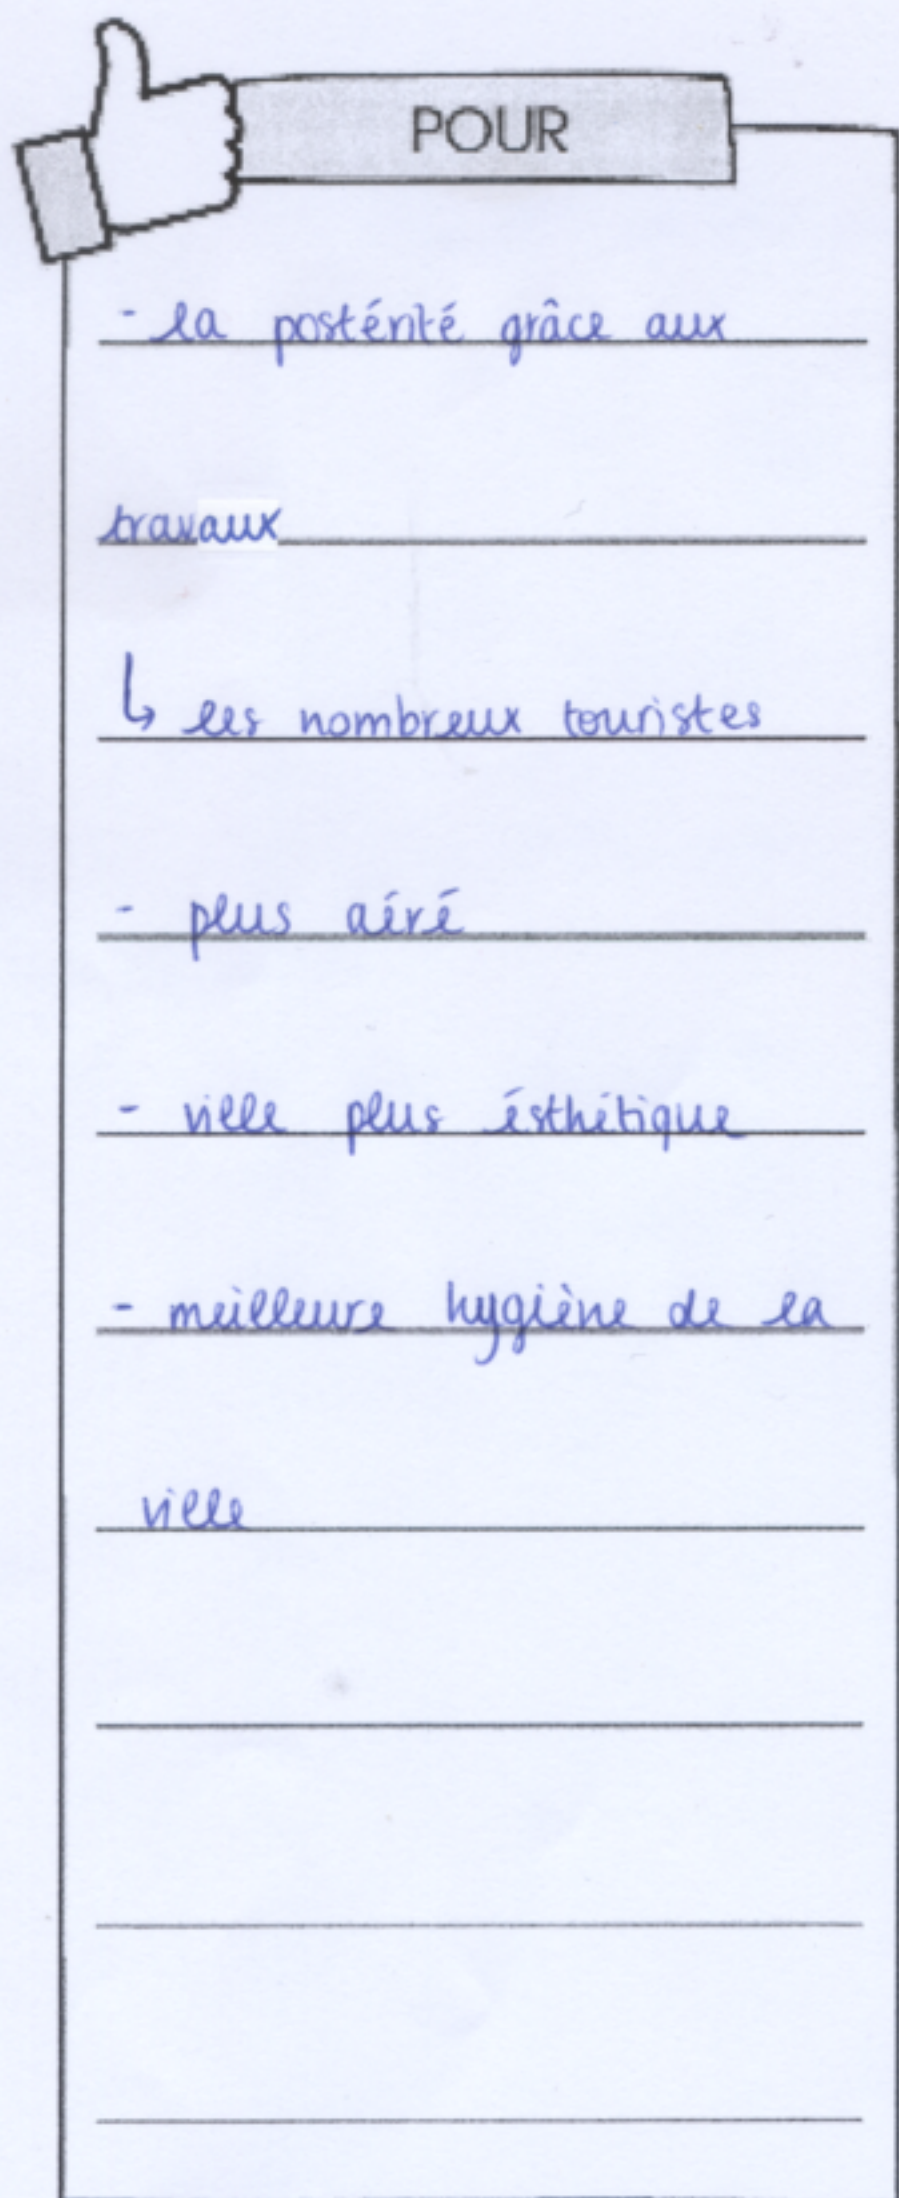 POUR
- la postérité grâce aux
travaux
↳ les nombreux touristes
- plus aéré
- ville plus ésthétique
- meilleure hygiène de la
ville